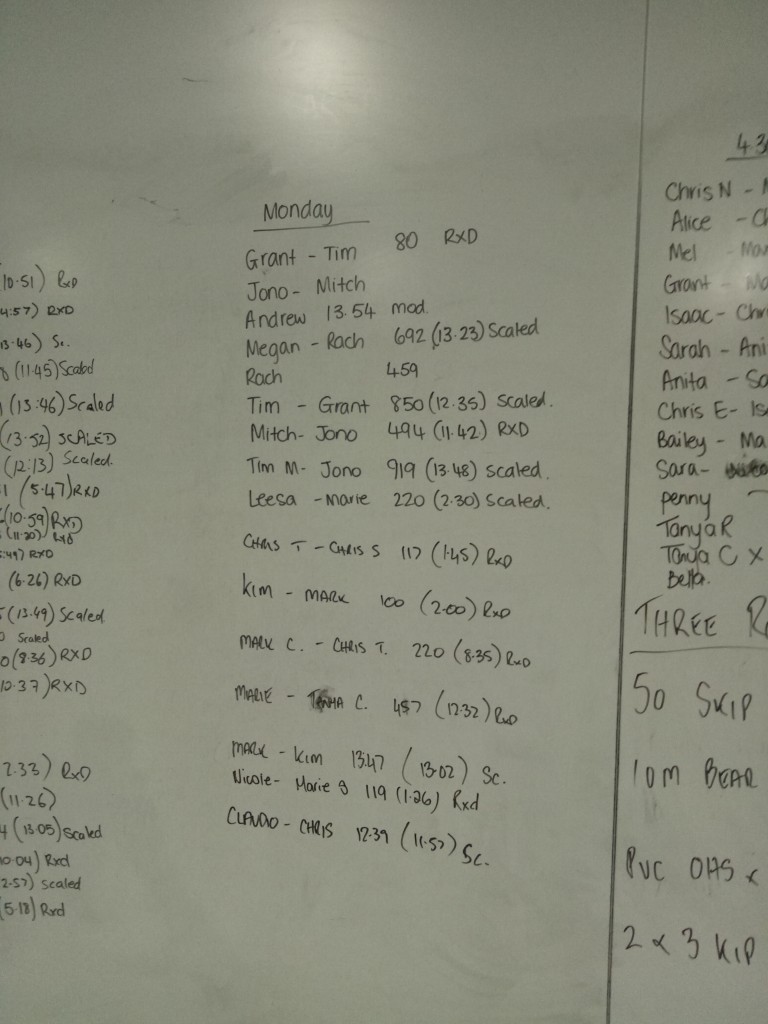 10.51) RxD
4:57) RXD
13.46) Sc.
8 (11.45) Scaled
(13:46) Scaled
(13.52) SCALED
(12:13) Scaled.
1 (5.47) RXD
(10.59) RXD
(11.20) RXD
:49) RXD
(6.26) RXD
5 (13.49) Scaled
0 Scaled
0 (8.36) RXD
10.37) RXD
2.33) RxD
(11.26)
4 (13.05) Scaled
10.04) Rxd
2.57) Scaled
(5.18) Rxd
Monday
Grant - Tim 80 RXD
Jono - Mitch
Andrew 13.54 mod.
Megan - Rach 692 (13.23) Scaled
Rach 459
Tim - Grant 850 (12.35) Scaled.
Mitch - Jono 494 (11.42) RXD
Tim M - Jono 919 (13.48) Scaled.
Leesa - Marie 220 (2.30) Scaled.
CHRIS T - CHRIS S 117 (1.45) RxD
KIM - MARK 100 (2.00) RxD
MARK C. - CHRIS T. 220 (8.35) RxD
MARIE - TANYA C. 457 (12.32) RxD
MARK - KIM 13.47 (13.02) Sc.
Nicole - Marie S 119 (1.26) Rxd
CLAUDIO - CHRIS 12.39 (11.57) Sc.
4.3
Chris N - M
Alice - Ch
Mel - Mar
Grant - Ma
Isaac - Chri
Sarah - Ani
Anita - Sa
Chris E - Is
Bailey - Ma
Sara -
Penny
Tanya R
Tanya C x
Bella.
THREE R
50 SKIP
10M BEAR
PVC OHS x
2 x 3 KIP